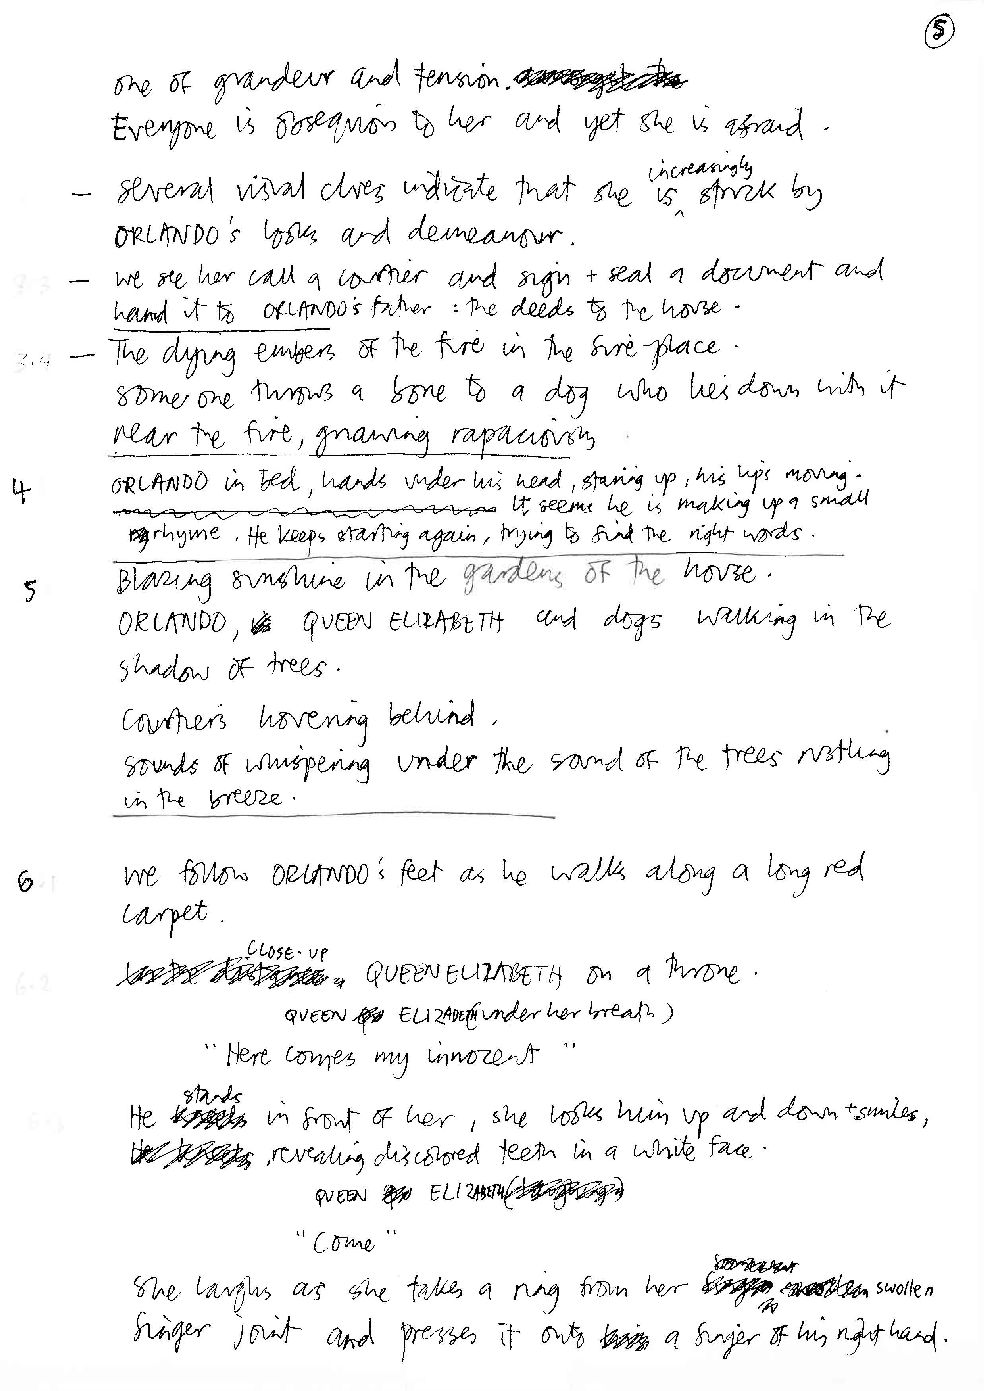 5
one of grandeur and tension.
Everyone is obsequious to her and yet she is afraid.
increasingly
— several visual clues indicate that she is ‸ struck by
ORLANDO's looks and demeanour.
— we see her call a courtier and sign + seal a document and
hand it to ORLANDO's father : the deeds to the house.
3.4 — The dying embers of the fire in the fire place.
Someone throws a bone to a dog who lies down with it
near the fire, gnawing rapaciously
4 ORLANDO in bed, hands under his head, staring up, his lips moving.
It seems he is making up a small
rhyme. He keeps starting again, trying to find the right words.
5 Blazing sunshine in the gardens of the house.
ORLANDO, QUEEN ELIZABETH and dogs walking in the
shadow of trees.
Courtiers hovering behind.
Sounds of whispering under the sound of the trees rustling
in the breeze.
6 We follow ORLANDO's feet as he walks along a long red
carpet.
CLOSE-UP
6.2 QUEEN ELIZABETH on a throne.
QUEEN ELIZABETH (under her breath)
"Here comes my innocent"
stands
He in front of her, she looks him up and down + smiles,
revealing discolored teeth in a white face.
QUEEN ELIZABETH
"Come"
She laughs as she takes a ring from her swollen
finger joint and presses it onto a finger of his right hand.